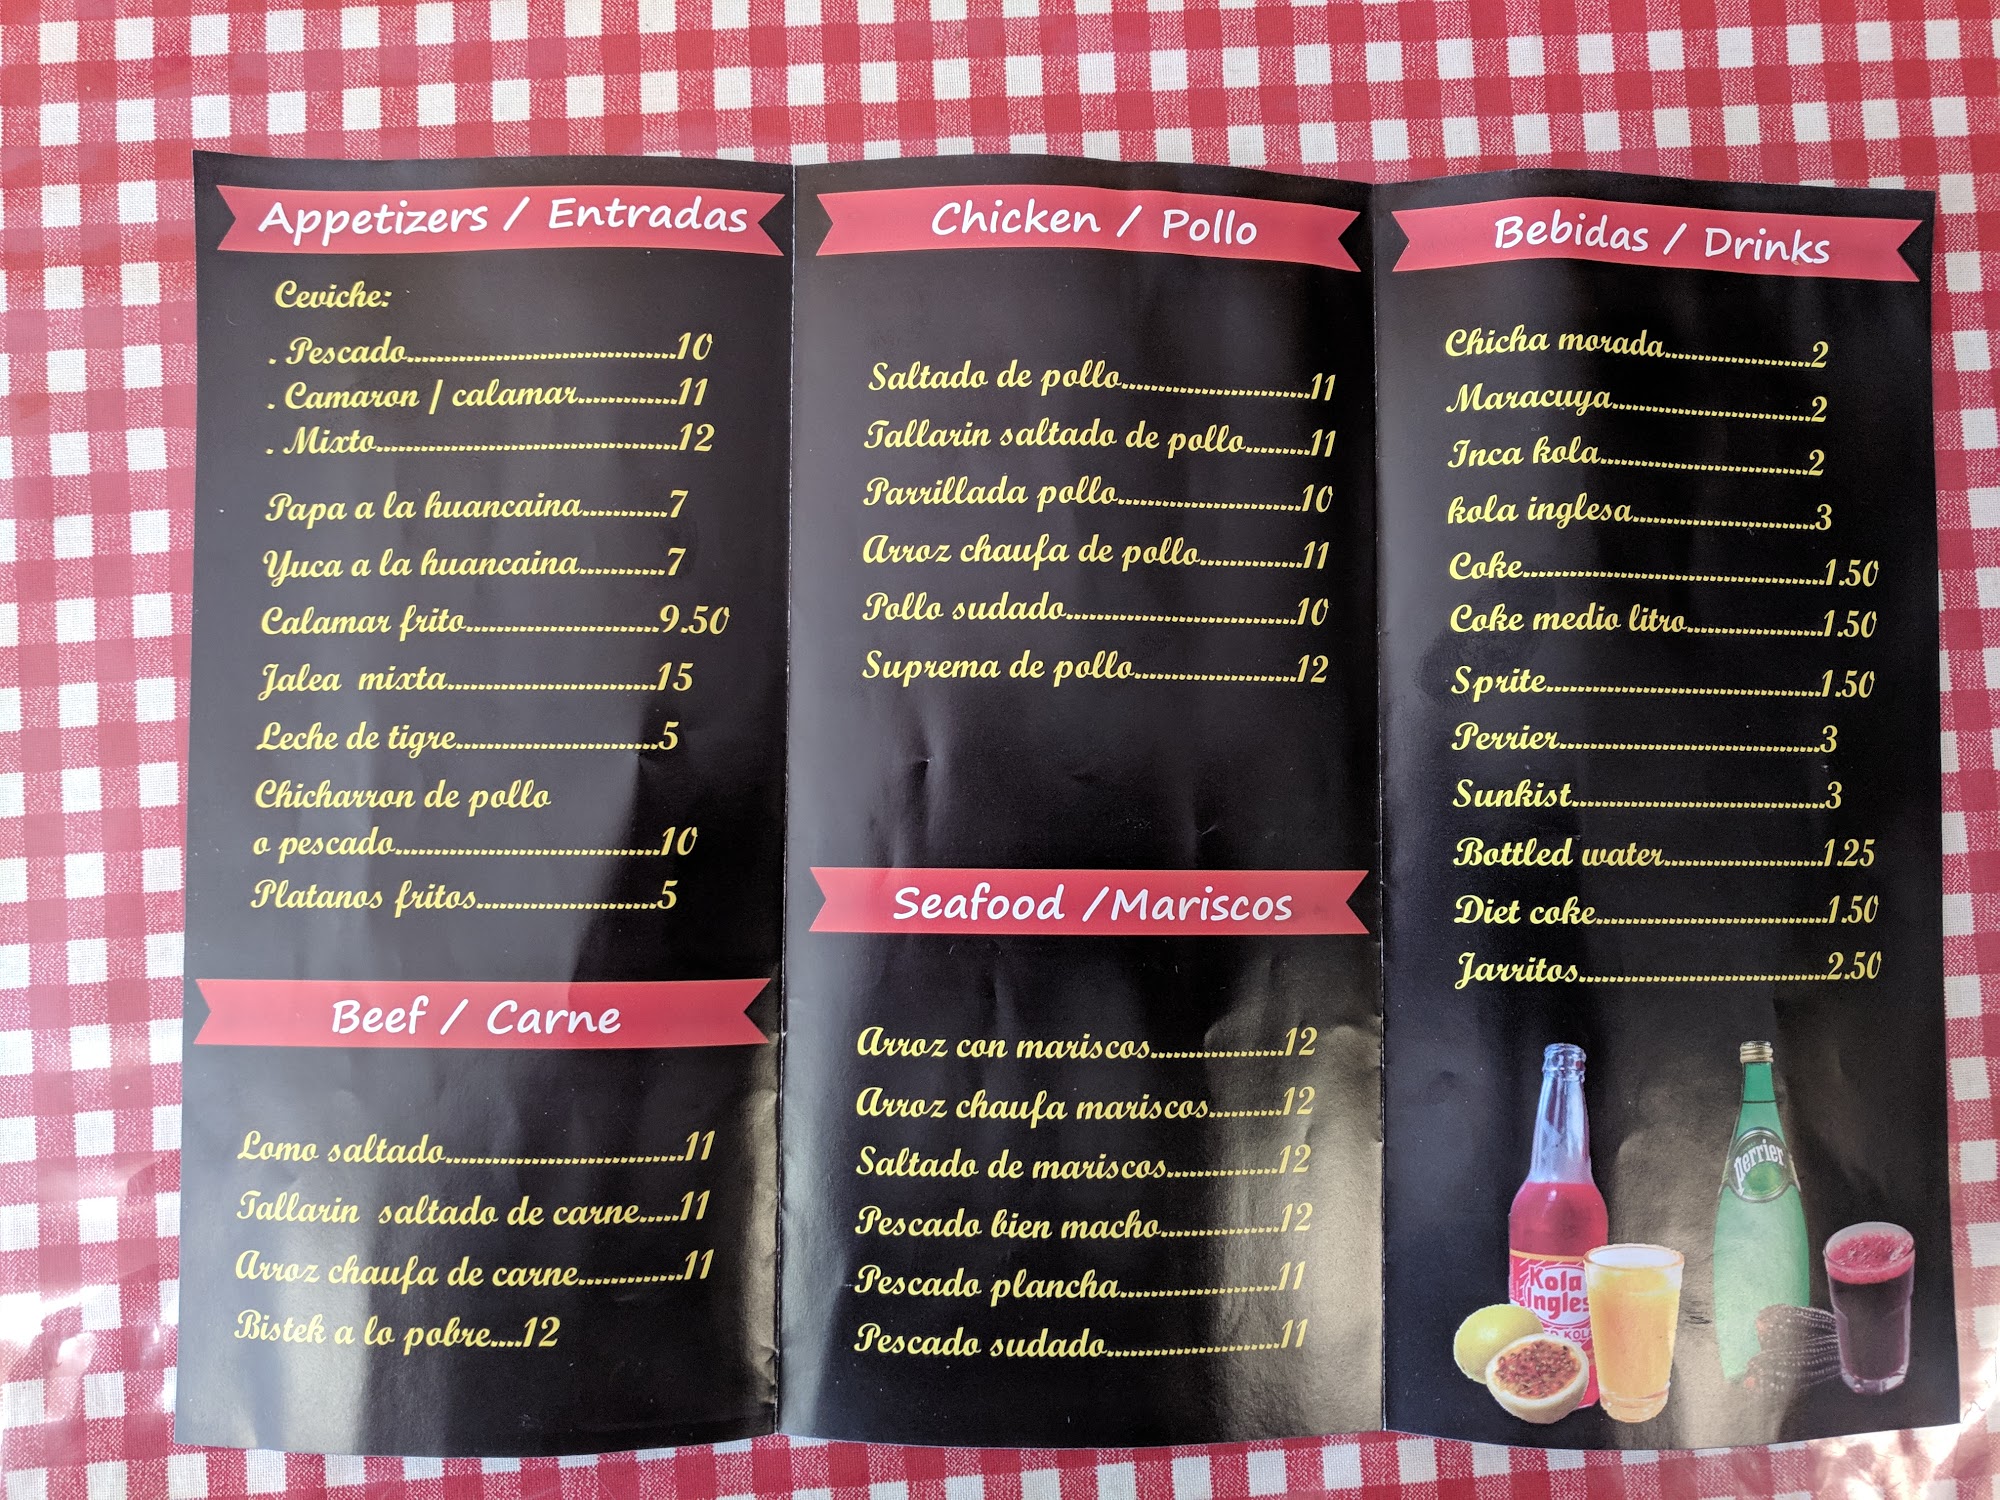 Appetizers / Entradas
Ceviche:
. Pescado....................................10
. Camaron / calamar.............11
. Mixto........................................12
Papa a la huancaina...........7
Yuca a la huancaina...........7
Calamar frito.........................9.50
Jalea mixta............................15
Leche de tigre...........................5
Chicharron de pollo
o pescado...................................10
Platanos fritos........................5
Beef / Carne
Lomo saltado................................11
Tallarin saltado de carne.....11
Arroz chaufa de carne.............11
Bistek a lo pobre....12
Chicken / Pollo
Saltado de pollo.........................11
Tallarin saltado de pollo........11
Parrillada pollo........................10
Arroz chaufa de pollo.............11
Pollo sudado..............................10
Suprema de pollo.....................12
Seafood /Mariscos
Arroz con mariscos.................12
Arroz chaufa mariscos.........12
Saltado de mariscos..............12
Pescado bien macho...............12
Pescado plancha.....................11
Pescado sudado.......................11
Bebidas / Drinks
Chicha morada...................2
Maracuya..........................2
Inca kola...........................2
kola inglesa........................3
Coke........................................1.50
Coke medio litro..................1.50
Sprite.....................................1.50
Perrier...................................3
Sunkist..................................3
Bottled water.....................1.25
Diet coke...............................1.50
Jarritos.................................2.50
Perrier
Kola
Ingles